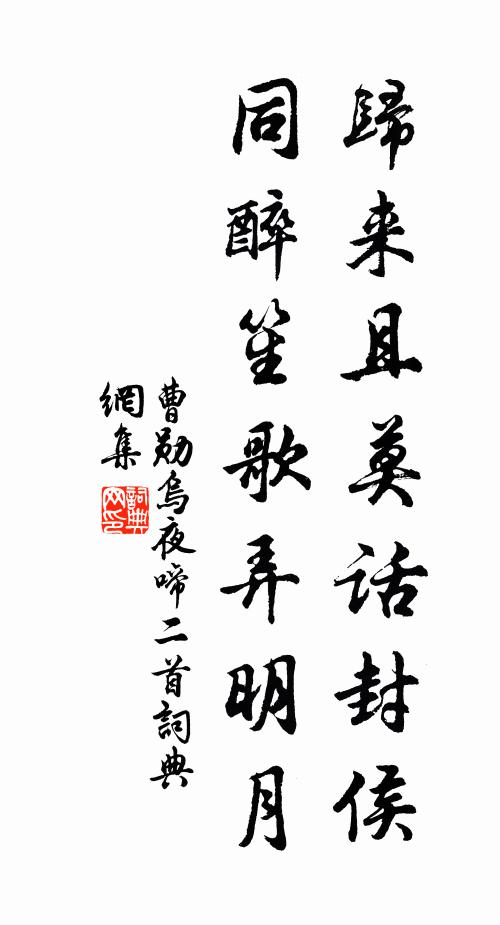 歸来且莫话封侯
同醉笙歌弄明月
曹勛烏夜啼二首詞典
網集
詞典
网印